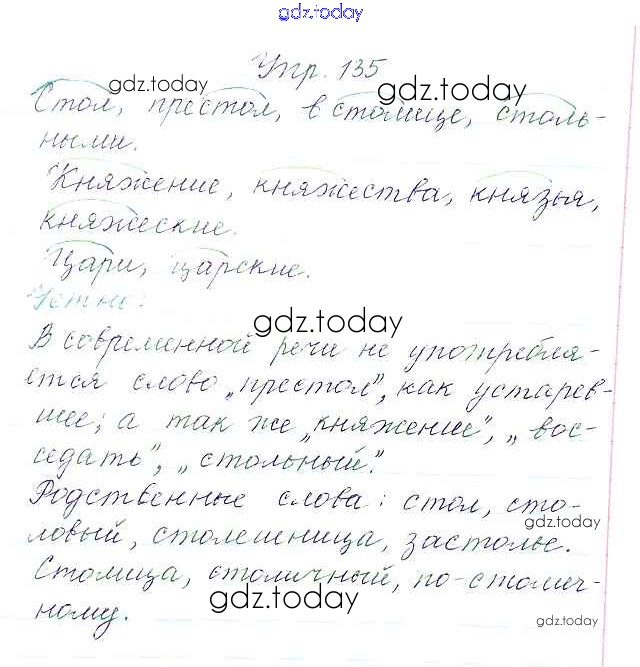 gdz.today
Упр. 135
gdz.today
gdz.today
Стол, престол, в столице, столь-
ными.
Княжение, княжества, князья,
княжеские.
Цари, царские.
Устно:
gdz.today
В современной речи не употребля-
ется слово „престол”, как устарев-
шее; а так же „княжение”, „вос-
седать”, „стольный”.
Родственные слова: стол, сто-
gdz.today
ловый, столешница, застолье.
Столица, столичный, по-столич-
gdz.today
ному.
gdz.today